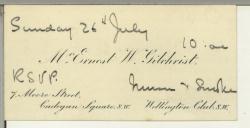 Sunday 26th July
10. oc
Mr. Ernest W. Gilchrist.
R.S.V.P.
7, Moore Street,
Cadogan Square. S.W. Wellington Club. S.W.